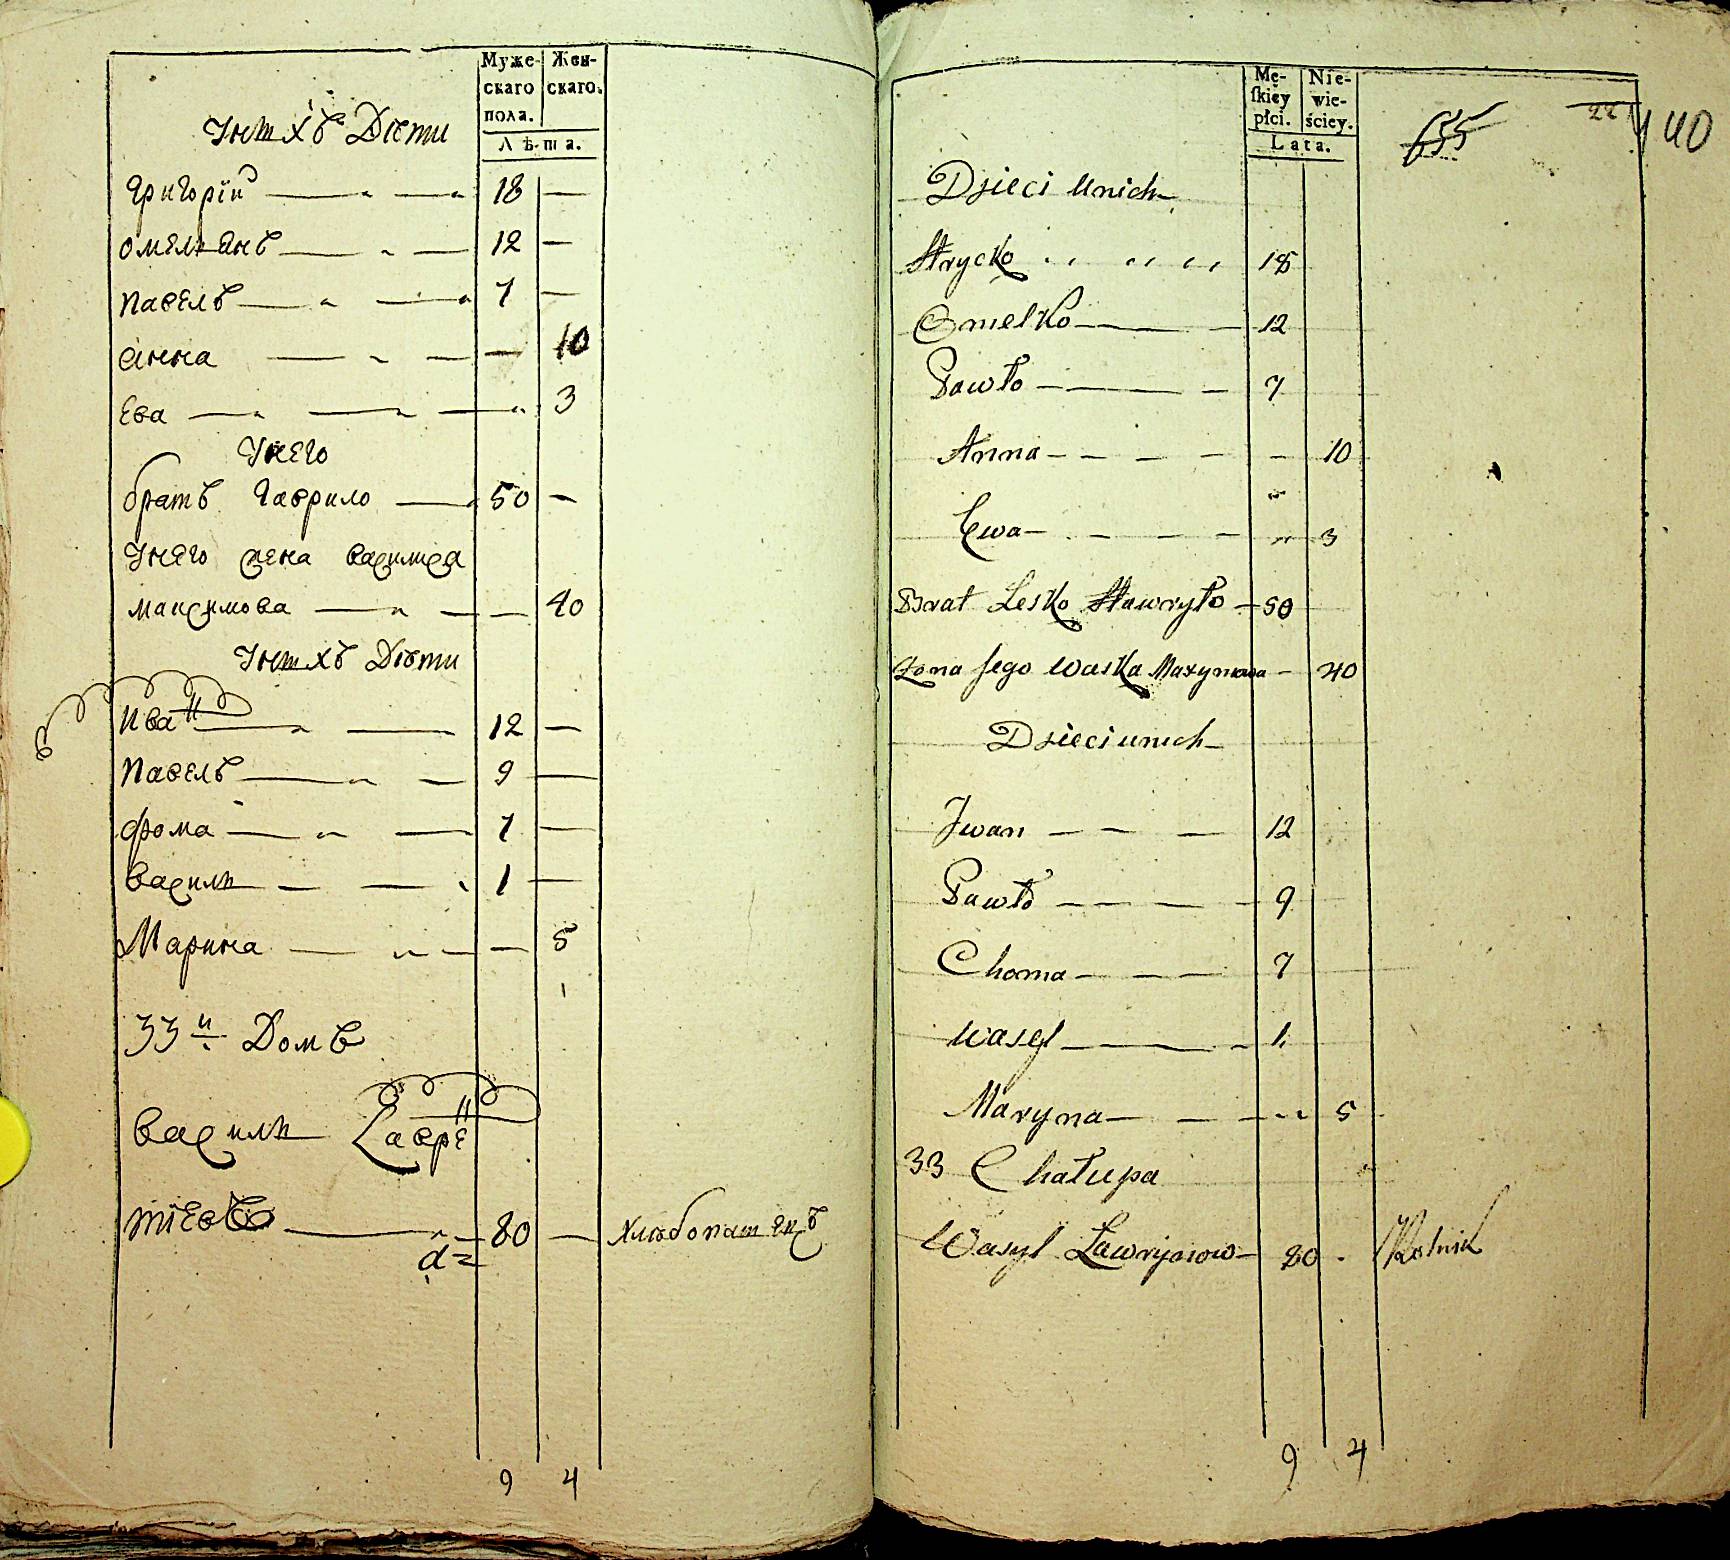 Муже-
скаго
пола.
Жен-
скаго.
Лѣ-та.
Унихъ Дѣти
Григорій 18 —
Омельянъ 12 —
Павелъ 7 —
Анна — 10
Ева 3
Унего
братъ Гаврило 50 —
Унего жена Василиса
Максимова — 40
Унихъ Дѣти
Иван 12 —
Павелъ 9 —
Фома 7 —
Васили 1 —
Марина — 5
33й Домъ
Васили Лаврен
тіевъ 80 — Хлѣбопашецъ
9 4
Mę-
skiéy
płci.
Nie-
wie-
ściey.
Lata.
655
22
140
Dzieci Unich
Hrycko 18
Omelko 12
Pawło 7
Anna - 10
Ewa 3
Brat Lesko Hawryło 50
Żona Jego Waska Maxymowa 40
Dzieci unich
Jwan 12
Pawło 9
Choma 7
Wasyl 1
Maryna 5
33 Chałupa
Wasyl Ławrynow 80 Rolnik
9 4